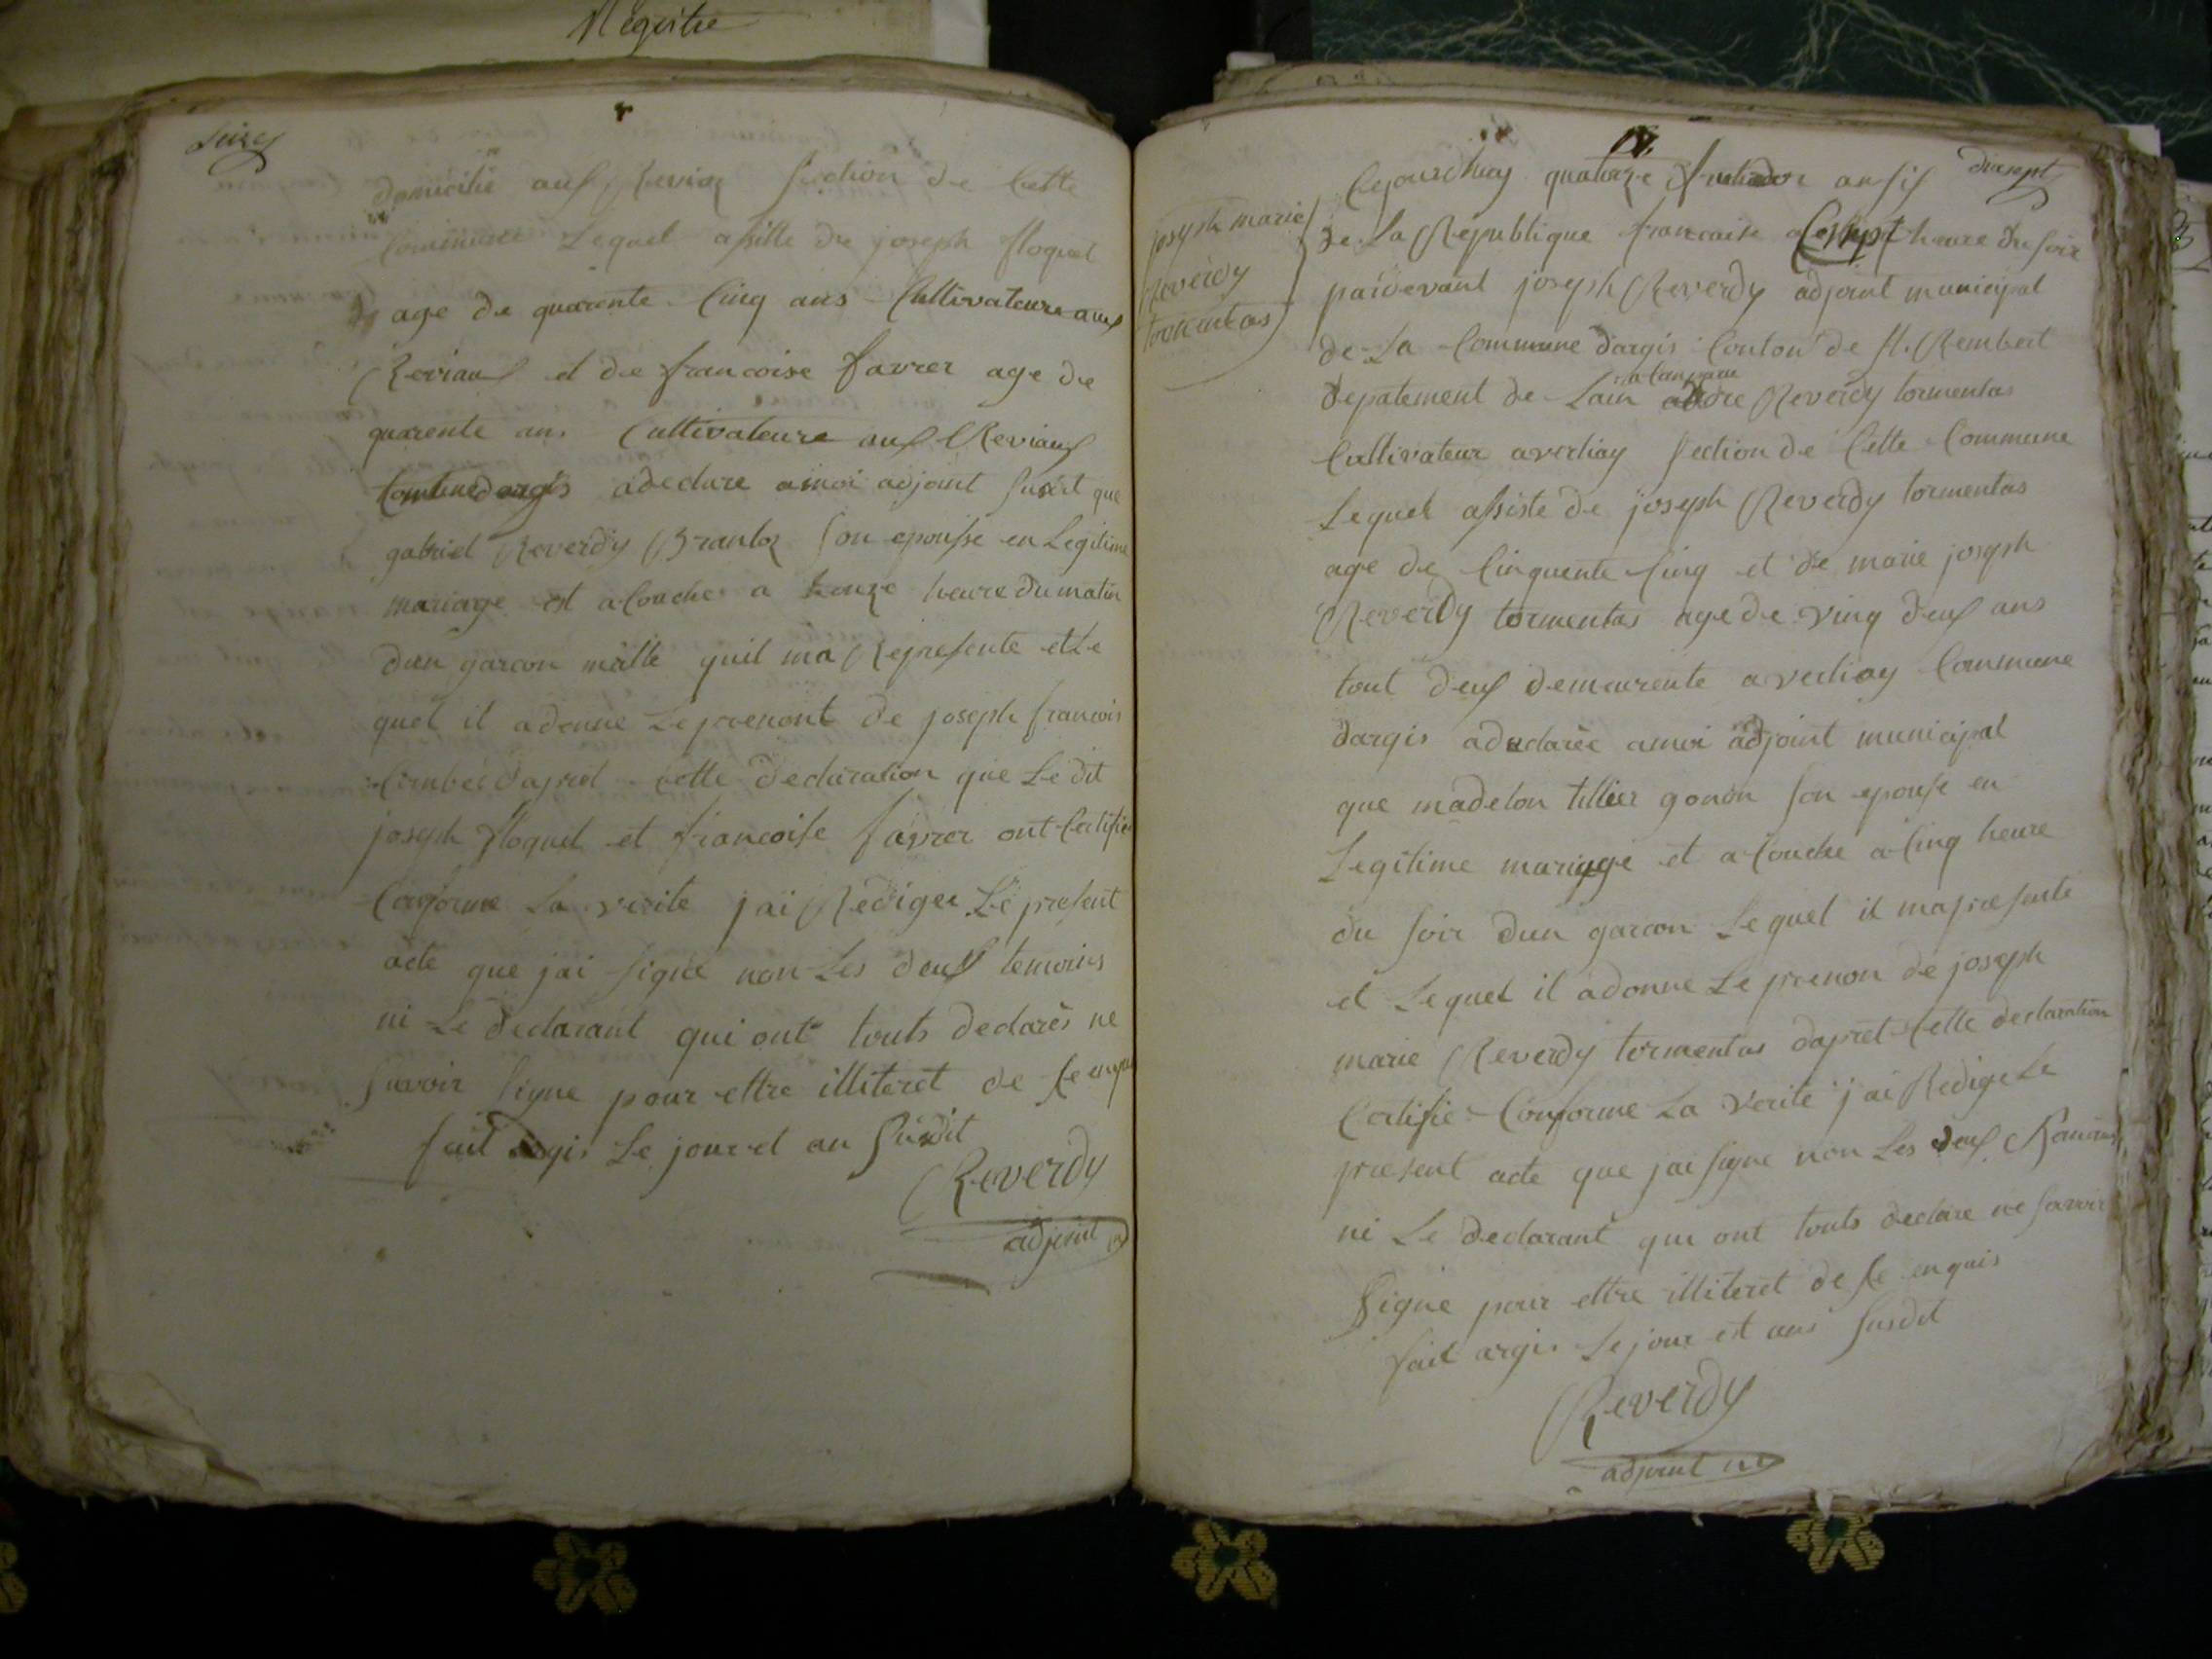 Registre
Seize
domicilié aux Reviaz section de cette
commune Lequel assiste de joseph floquet
age de quarente Cinq ans Cultivateure aux
Reviaux et de francoise favrer age de
quarente ans Cultivateure aux Reviaux
Commune dargis adeclare amoi adjoint susdit que
gabriel Reverdy Brantoz son epousse en Legitime
mariage est acouche a honze heure du matin
dun garcon malle quil ma Represente et Le
quel il adonne Le prenont de joseph francois
daprest cette declaration que Le dit
joseph floquet et francoise favrer ont Certifie
Conforme La verite jai Rediger Le present
acte que jai signé non Les deux temoins
ni Le declarant qui ont touts declarés ne
savoir signe pour ettre illiteret de se enquis
fait argis Le jour et an susdit
Reverdy
adjoint
17
dixsept
joseph marie
Reverdy
tormentas
Cejourdhuy quatorze fructidor an six
de La Republique francaise a sept heure du soir
pardevant joseph Reverdy adjoint municipal
de La Commune dargis Conton de st. Rembert
a Comparu
depatement de Lain andre Reverdy tormentas
Cultivateur averliay section de Cette Commune
Lequel assiste de joseph Reverdy tormentas
age de Cinquente Cinq et de marie joseph
Reverdy tormentas age de ving deux ans
tout deux demeurente a verliay Commune
dargis adeclarée amoi adjoint municipal
que madelon tillier gonon son epouse en
Legitime mariage et acouche a Cinq heure
du soir dun garcon Lequel il ma presente
et Lequel il adonne Le prenon de joseph
marie Reverdy tormentas dapret Cette declaration
Certifie Conforme La verite jai Redige Le
present acte que jai signe non Les deux
ni Le declarant qui ont touts declare ne savoir
signe pour ettre illiteret de se enquis
fait argis Le jour et ans susdit
Reverdy
adjoint